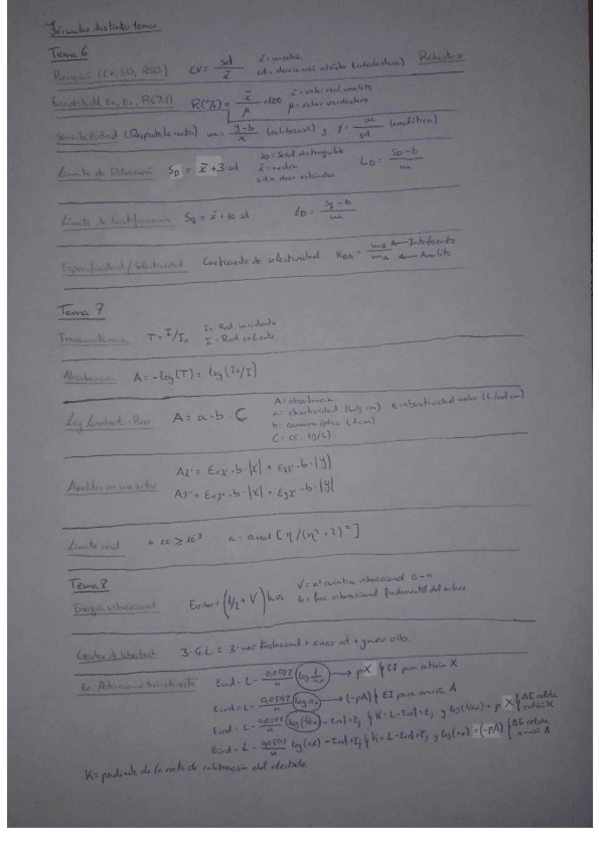 Fórmulas distintos temas
Tema 6
Precisión (CV, SD, RSD) CV = sd/x̄ x̄ = media
sd = desviación estándar Robustez
R(%) = x̄/μ ·100 x̄ = valor real analito
μ = valor verdadero
Sensibilidad (Respecto la recta) m = y-b/x (calibración) y γ = m/sd (analítica)
Límite de Detección S_D = x̄ + 3·sd x̄ = media L_D = S_D-b/m
Límite de Cuantificación S_q = x̄ + 10 sd L_Q = S_q-b/m
Especificidad / Selectividad Coeficiente de selectividad K_BA = m_B/m_A ← Interferente
← Analito
Tema 7
Transmitancia T = I/I₀ I₀ = Rad. incidente
I = Rad. saliente
Absorbancia A = -log(T) = log(I₀/I)
Ley Lambert-Beer A = a·b·C A = absorbancia
a: absortividad (L/g cm) ε = absortividad molar (L/mol cm)
b: camino óptico (1 cm)
C = cc (g/L)
Aλ' = ε_xλ'·b·|x| + ε_yλ'·b·|y|
Aλ'' = ε_xλ''·b·|x| + ε_yλ''·b·|y|
Límite real a = a real [η/(η²+2)²]
Tema 8
Energía vibracional E vibr = (1/2 + V) h V = nº cuántico vibracional 0-n
fundamental del enlace
Grados de libertad 3·G.L = 3
Ec Potenciometría directa Eind = L - 0,0592/n log → pX EI para catión X
Eind = L - 0,0592/n → (-pA) EI para anión A
Eind = L - 0,0592/n - Eref + Ej K = L - Eref + Ej y log = pX ΔE celda
catión X
Eind = L - 0,0592/n log - Eref + Ej K = L - Eref + Ej y log = (-pA) ΔE celda
anión A
K = pendiente de la recta de calibración del electrodo.